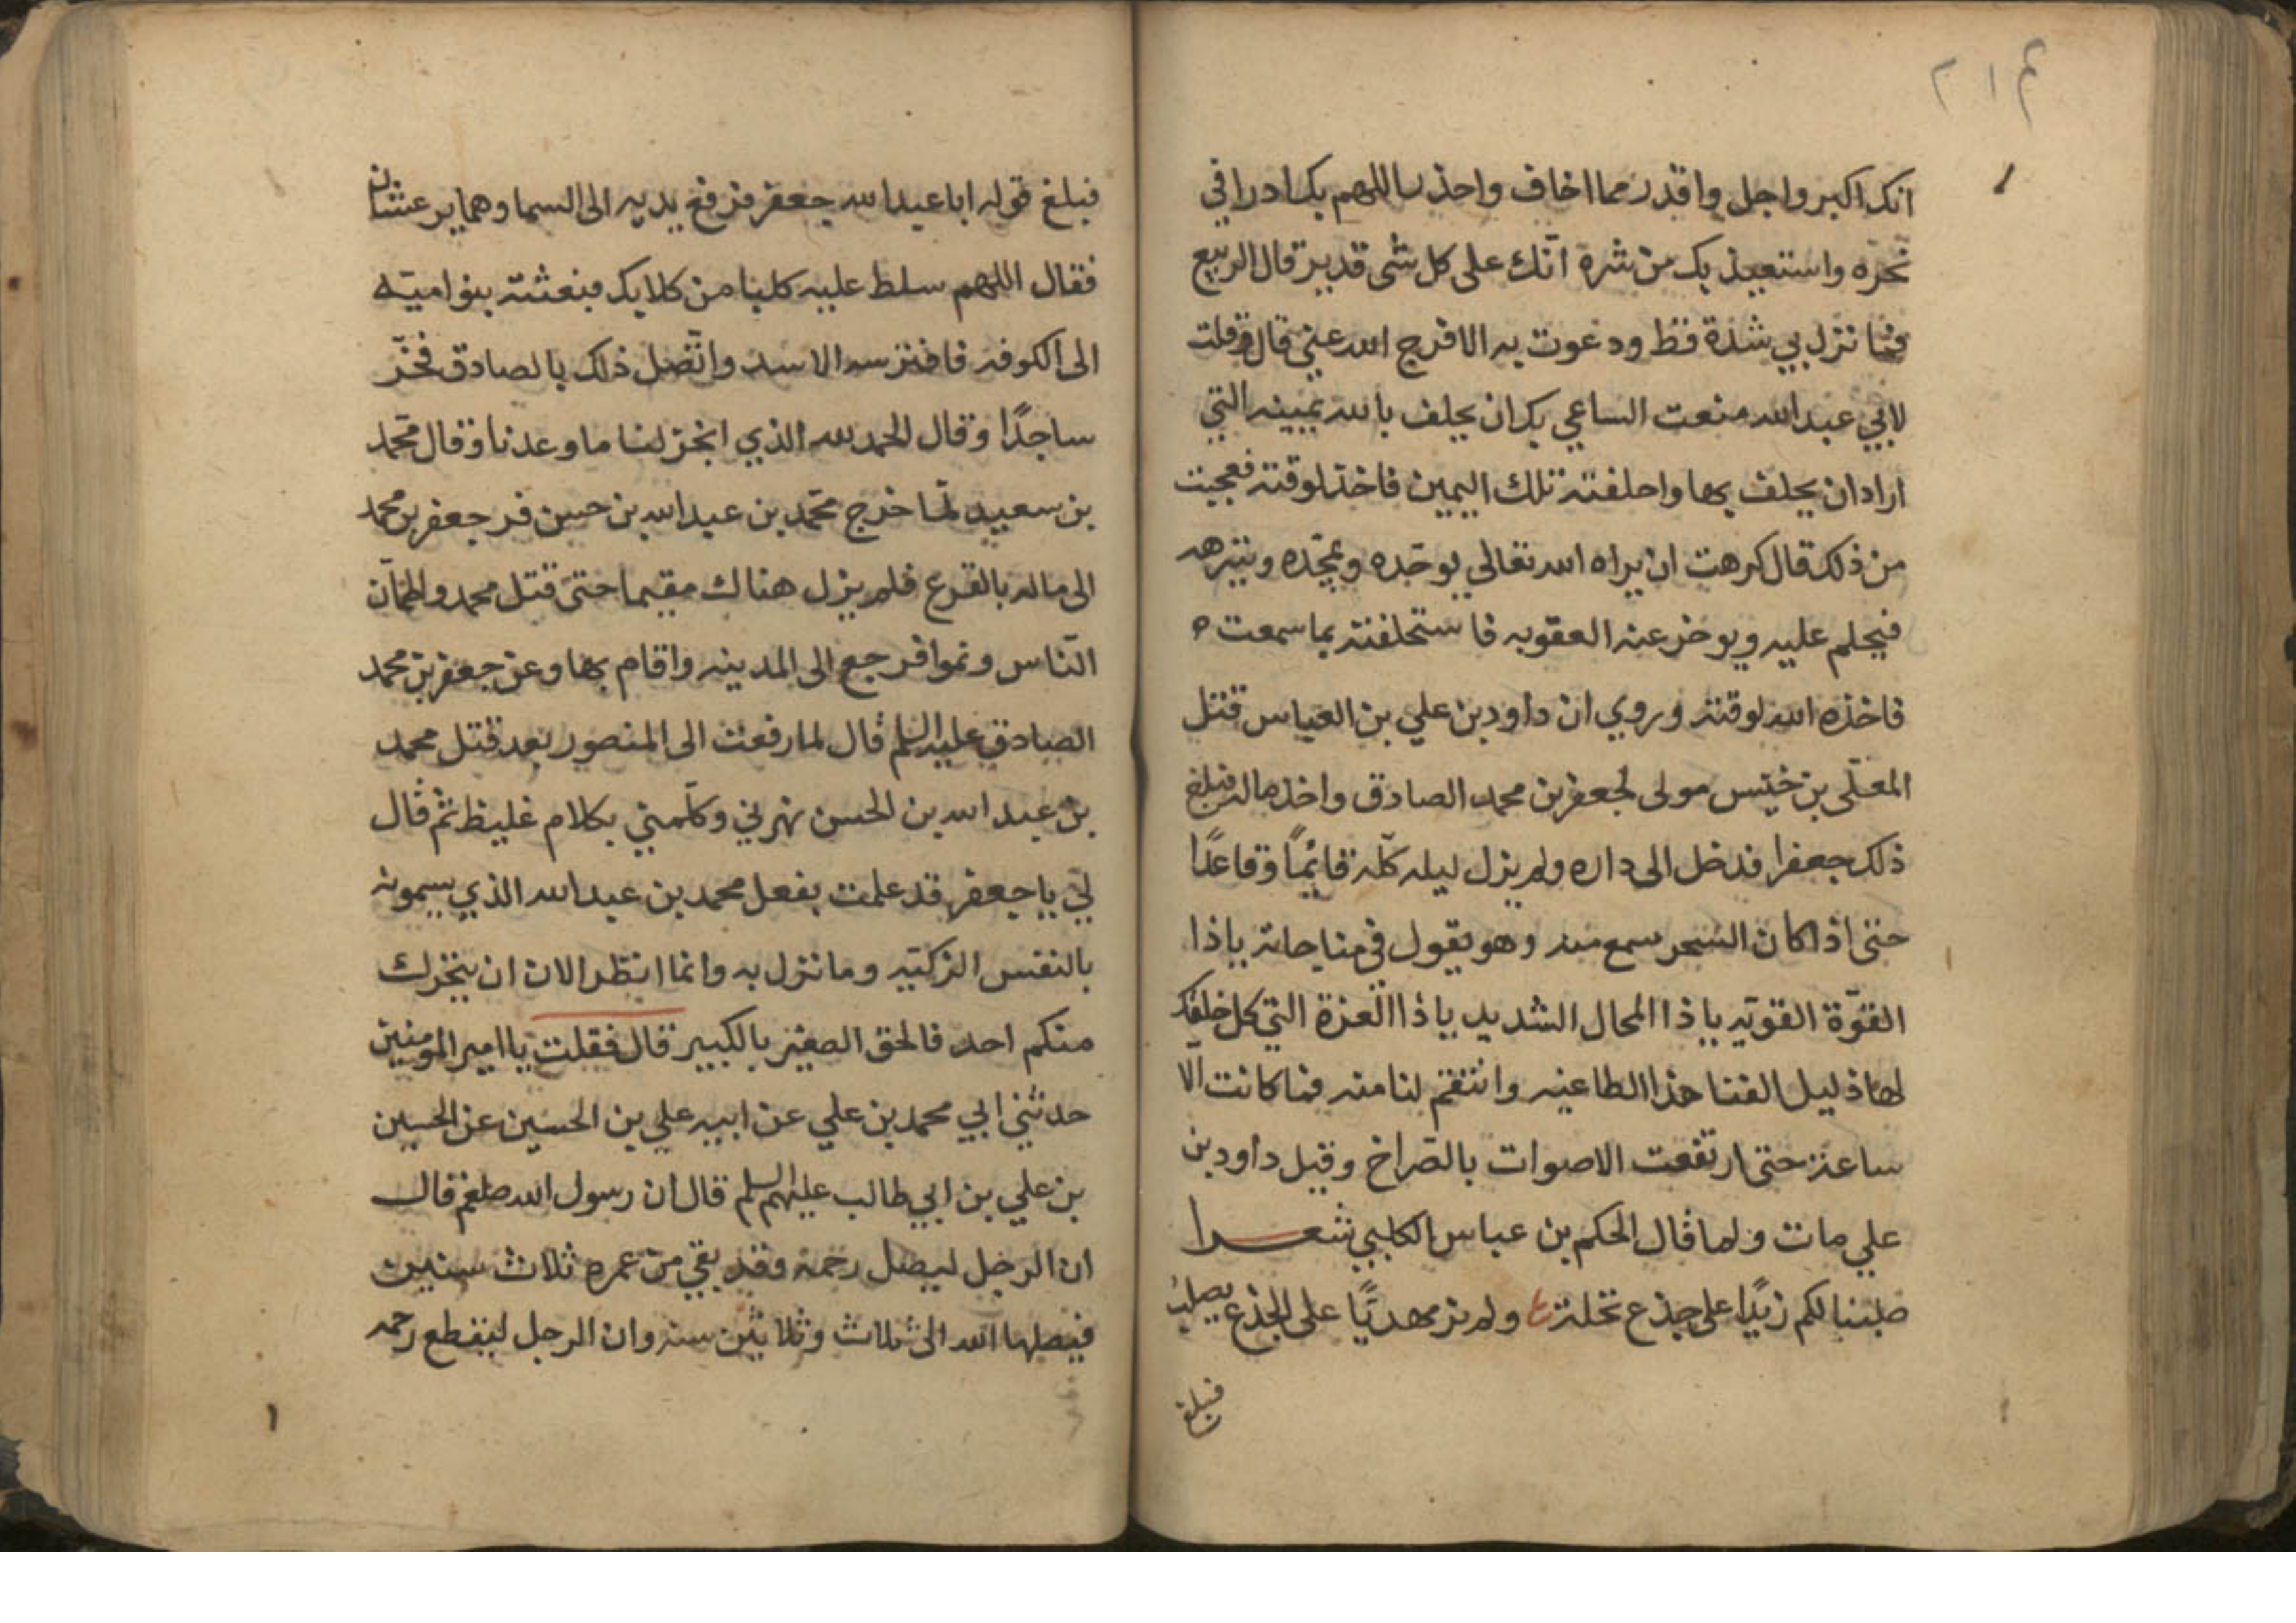 ٢١٤
انك اكبر واجل واقدر مما اخاف واحذر اللهم بك ادرا في
نحره واستعيذ بك من شره انّك على كل شى قدير قال الربيع
فما نزل بي شدة قط ودعوت به الا فرج الله عني قال وقلت
لابي عبد الله منعت الساعي بك ان يحلف بالله يمينه التي
اراد ان يحلف بها واحلفته تلك اليمين فاخذ لوقته فعجبت
من ذلك قال كرهت ان يراه الله تعالي يوحّده ويمجّده وينزهه
فيحلم عليه ويوخر عنه العقوبه فاستحلفته بما سمعت ه
فاخذه الله لوقته وروي ان داود بن علي بن العباس قتل
المعلّى بن خنيس مولى لجعفر بن محمد الصادق واخذ ماله فبلغ
ذلك جعفرا فدخل الى داره ولم يزل ليله كلّه قائمًا وقاعدًا
حتى اذا كان السحر سمع منه وهو يقول في مناجاته ياذا
القوّة القويّه ياذا المحال الشديد ياذا العزة التي كل خلقك
لها ذليل اكفنا هذا الطاغيه وانتقم لنا منه فما كانت الّا
ساعة حتى ارتفعت الاصوات بالصّراخ وقيل داود بن
علي مات ولما قال الحكم بن عباس الكلبي شعرا
صلبنا لكم زيدًا على جذع نخلة ولم نر مهديًّا على الجذع يصلب
فبلغ
فبلغ قوله ابا عبد الله جعفر فرفع يديه الى السما وهما يرعشان
فقال اللهم سلط عليه كلبا من كلابك فبعثته بنوا اميّه
الى الكوفه فافترسه الاسد واتّصل ذلك بالصادق فخرّ
ساجدًا وقال الحمد لله الذي انجز لنا ما وعدنا وقال محمّد
بن سعيد لمّا خرج محمّد بن عبد الله بن حسن فر جعفر بن محمد
الى ماله بالفرع فلم يزل هناك مقيما حتى قتل محمد واطمأنّ
النّاس ونموا فرجع الى المدينه واقام بها وعن جعفر بن محمد
الصادق عليه السلم قال لما رفعت الى المنصور بعد قتل محمد
بن عبد الله بن الحسن نهرني وكلّمني بكلام غليظ ثم قال
ليّ يا جعفر قد علمت بفعل محمد بن عبد الله الذي يسمونه
بالنفس الزكيّه وما نزل به وانما انتظر الان ان يتحرك
منكم احد فالحق الصغير بالكبير قال فقلت يا امير المومنين
حدثني ابي محمد بن علي عن ابيه علي بن الحسين عن الحسين
بن علي بن ابي طالب عليهم السلم قال ان رسول الله صلعم قال
ان الرجل ليصل رحمه وقد بقي من عمره ثلاث سنين
فيصلها الله الى ثلاث وثلاثين سنه وان الرجل ليقطع رحمه